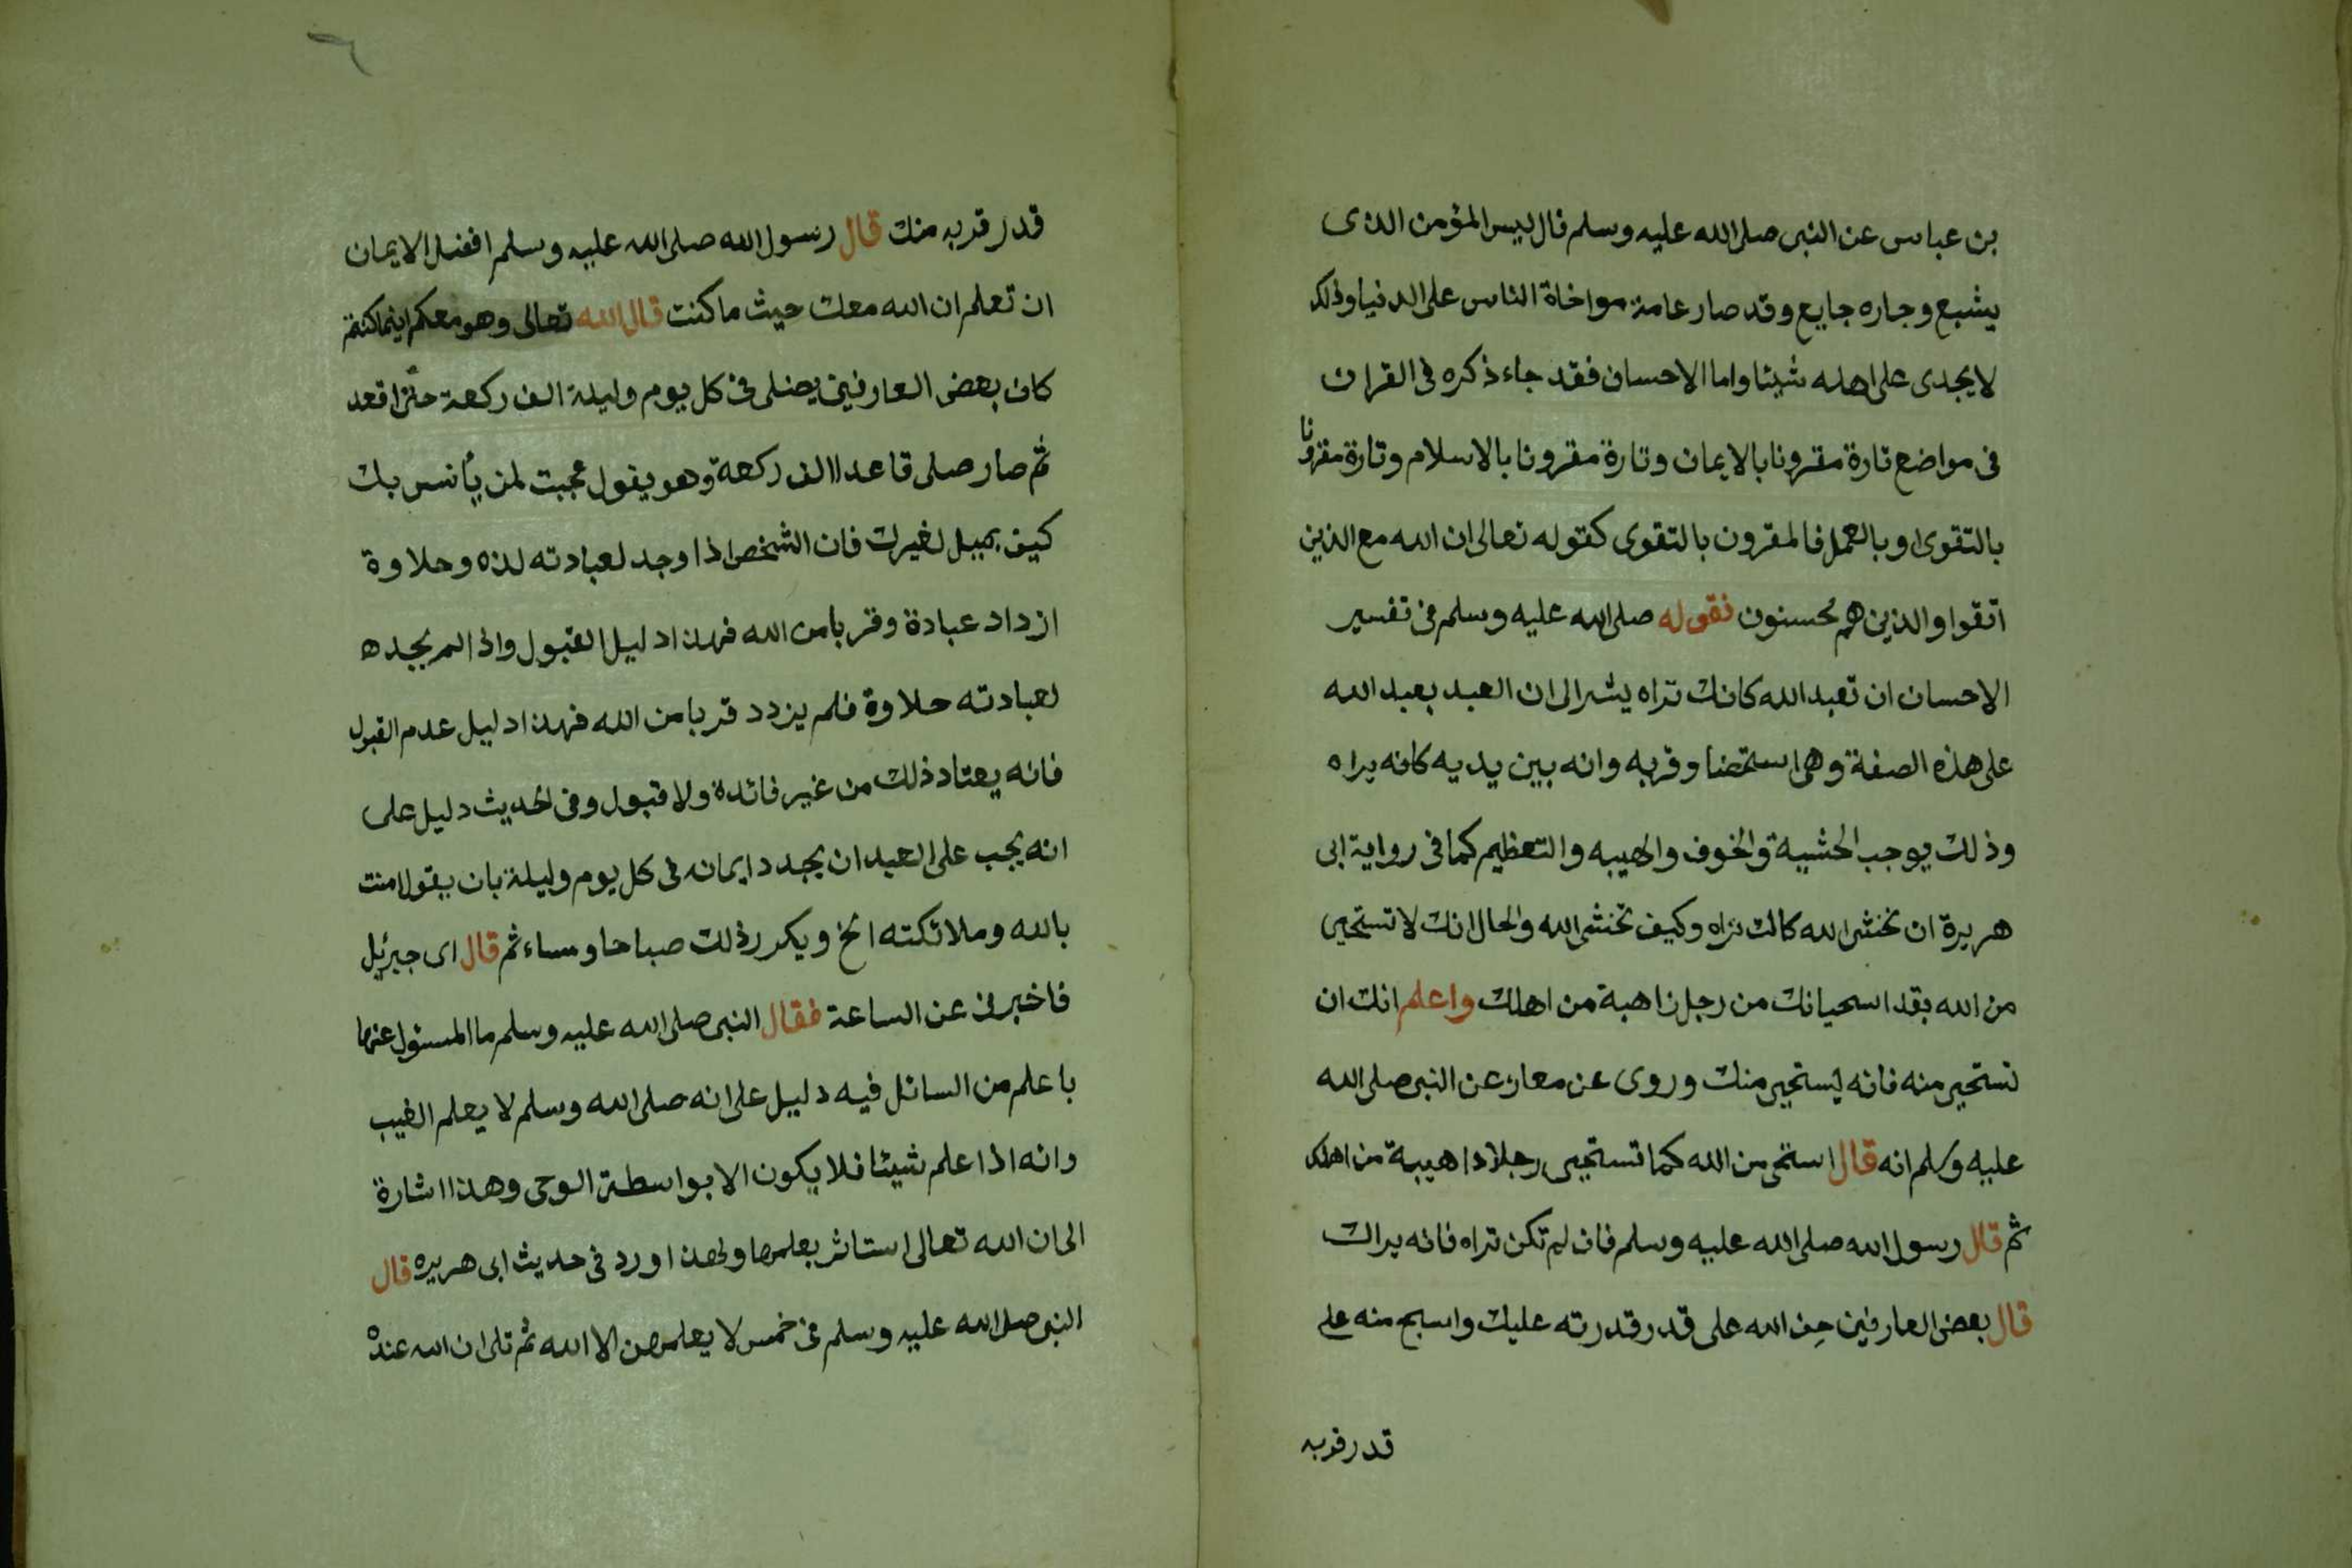 بن عباس عن النبى صلى الله عليه وسلم قال ليس المؤمن الذى
يشبع وجاره جايع وقد صار عامة مواخاة الناس على الدنيا وذلك
لا يجدى على اهله شيئا واما الاحسان فقد جاء ذكره فى القران
فى مواضع تارة مقرونا بالايمان وتارة مقرونا بالاسلام وتارة مقرونا
بالتقوى او بالعمل فالمقرون بالتقوى كقوله تعالى ان الله مع الذين
اتقوا والذين هم محسنون فقوله صلى الله عليه وسلم فى تفسير
الاحسان ان تعبد الله كانك تراه يشر الى ان العبد يعبد الله
على هذه الصفة وهى استحضا وقربه وانه بين يديه كانه يراه
وذلك يوجب الخشية والخوف والهيبه والتعظيم كما فى رواية ابى
هريرة ان تخشى الله كانك تراه وكيف تخشى الله والحال انك لا تستحيى
من الله بقد استحيانك من رجل ذاهبة من اهلك واعلم انك ان
تستحيى منه فانه يستحيى منك وروى عن معاذ عن النبى صلى الله
عليه وسلم انه قال استحى من الله كما تستحيى رجلا ذا هيبة من اهلك
ثم قال رسول الله صلى الله عليه وسلم فان لم تكن تراه فانه يراك
قال بعض العارفين خف الله على قدر قدرته عليك واستح منه على
قدر قربه
٦
قدر قربه منك قال رسول الله صلى الله عليه وسلم افضل الايمان
ان تعلم ان الله معك حيث ما كنت قال الله تعالى وهو معكم اينما كنتم
كان بعض العارفين يصلى فى كل يوم وليلة الف ركعة حتى اقعد
ثم صار صلى قاعدا الف ركعة وهو يقول عجبت لمن يأنس بك
كيف يميل لغيرك فان الشخص اذا وجد لعبادته لذه وحلاوة
ازداد عبادة وقربا من الله فهذا دليل القبول واذا لم يجده
لعبادته حلاوة فلم يزدد قربا من الله فهذا دليل عدم القبول
فانه يعتاد ذلك من غير فائدة ولا قبول وفى الحديث دليل على
انه يجب على العبد ان يجدد ايمانه فى كل يوم وليلة بان يقول امنت
بالله وملائكته الخ ويكرر ذلك صباحا ومساء ثم قال اى جبرئيل
فاخبرنى عن الساعة فقال النبى صلى الله عليه وسلم ما المسئول عنها
باعلم من السائل فيه دليل على انه صلى الله وسلم لا يعلم الغيب
وانه اذا علم شيئا فلا يكون الا بواسطة الوحى وهذا اشارة
الى ان الله تعالى استاثر بعلمها ولهذا ورد فى حديث ابى هريره قال
النبى صلى الله عليه وسلم فى خمس لا يعلمهن الا الله ثم تلى ان الله عنده